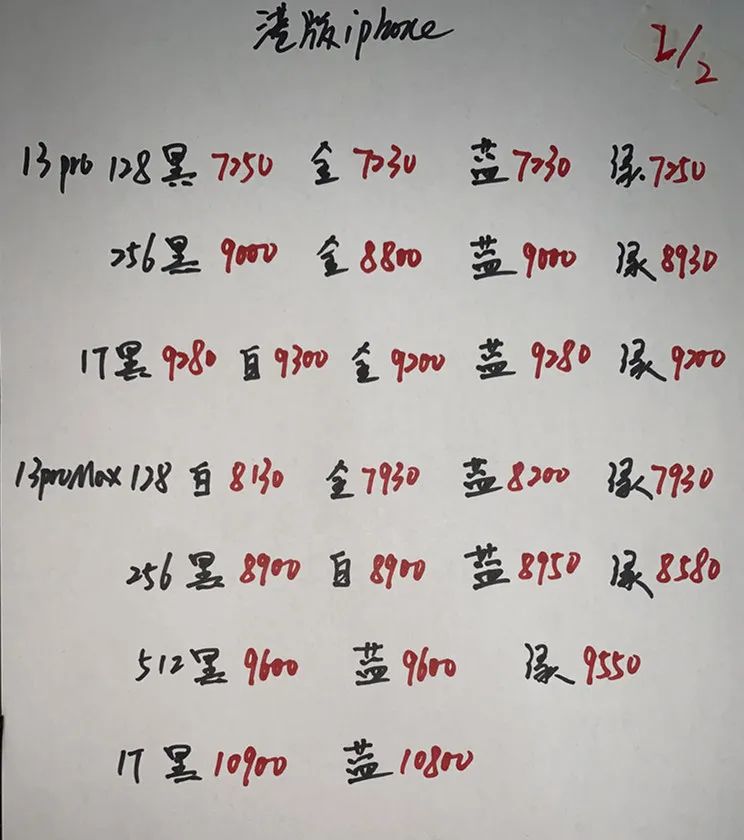 港版iphone
1/2
13pro 128黑 7250 金 7230 蓝 7230 绿 7250
256黑 9000 金 8800 蓝 9000 绿 8930
1T黑 9280 白 9300 金 9200 蓝 9280 绿 9200
13proMax 128 白 8130 金 7930 蓝 8200 绿 7930
256 黑 8900 白 8900 蓝 8950 绿 8580
512黑 9600 蓝 9600 绿 9550
1T 黑 10900 蓝 10800